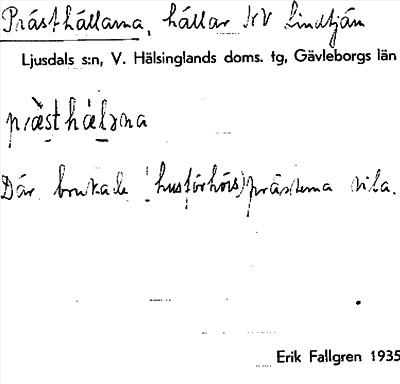 Prästhällarna, hällar NV Lindtjärn
Ljusdals s:n, V. Hälsinglands doms. tg, Gävleborgs län
præ̀sthæḷəna
Där brukade (husförhörs)prästerna vila.
Erik Fallgren 1935